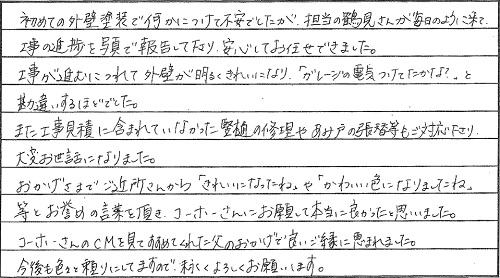 初めての外壁塗装で何かにつけて不安でしたが、担当の鶴見さんが毎日のように来て、
工事の進捗を写真で報告して下さり、安心してお任せできました。
工事が進むにつれて外壁が明るくきれいになり、「ガレージの電気つけてたかな？」と
勘違いするほどでした。
また工事見積に含まれていなかった竪樋の修理やあみ戸の張替等もご対応下さり、
大変お世話になりました。
おかげさまでご近所さんから「きれいになったね」や「かわいい色になりましたね」
等とお誉めの言葉を頂き、コーホーさんにお願して本当に良かったと思いました。
コーホーさんのCMを見てすすめてくれた父のおかげで良いご縁に恵まれました。
今後も色々と頼りにしてますので、末永くよろしくお願いします。